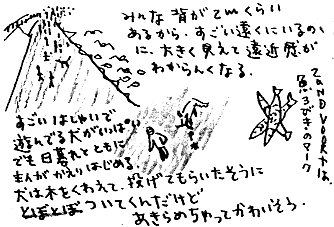 みんな背が2mくらい
あるから、すごい遠くにいるのに
に、大きく見えて遠近感が
わからんくなる。
ZANDVOORTは、
魚3びきのマーク
すごいはしゃいで
遊んでる犬がいっぱい
でも日暮れとともに
まんががえりはじめる。
犬は木をくわえて、投げてもらいたそうに
とぼとぼついてくんだけど
あきらめちゃってかわいそう。